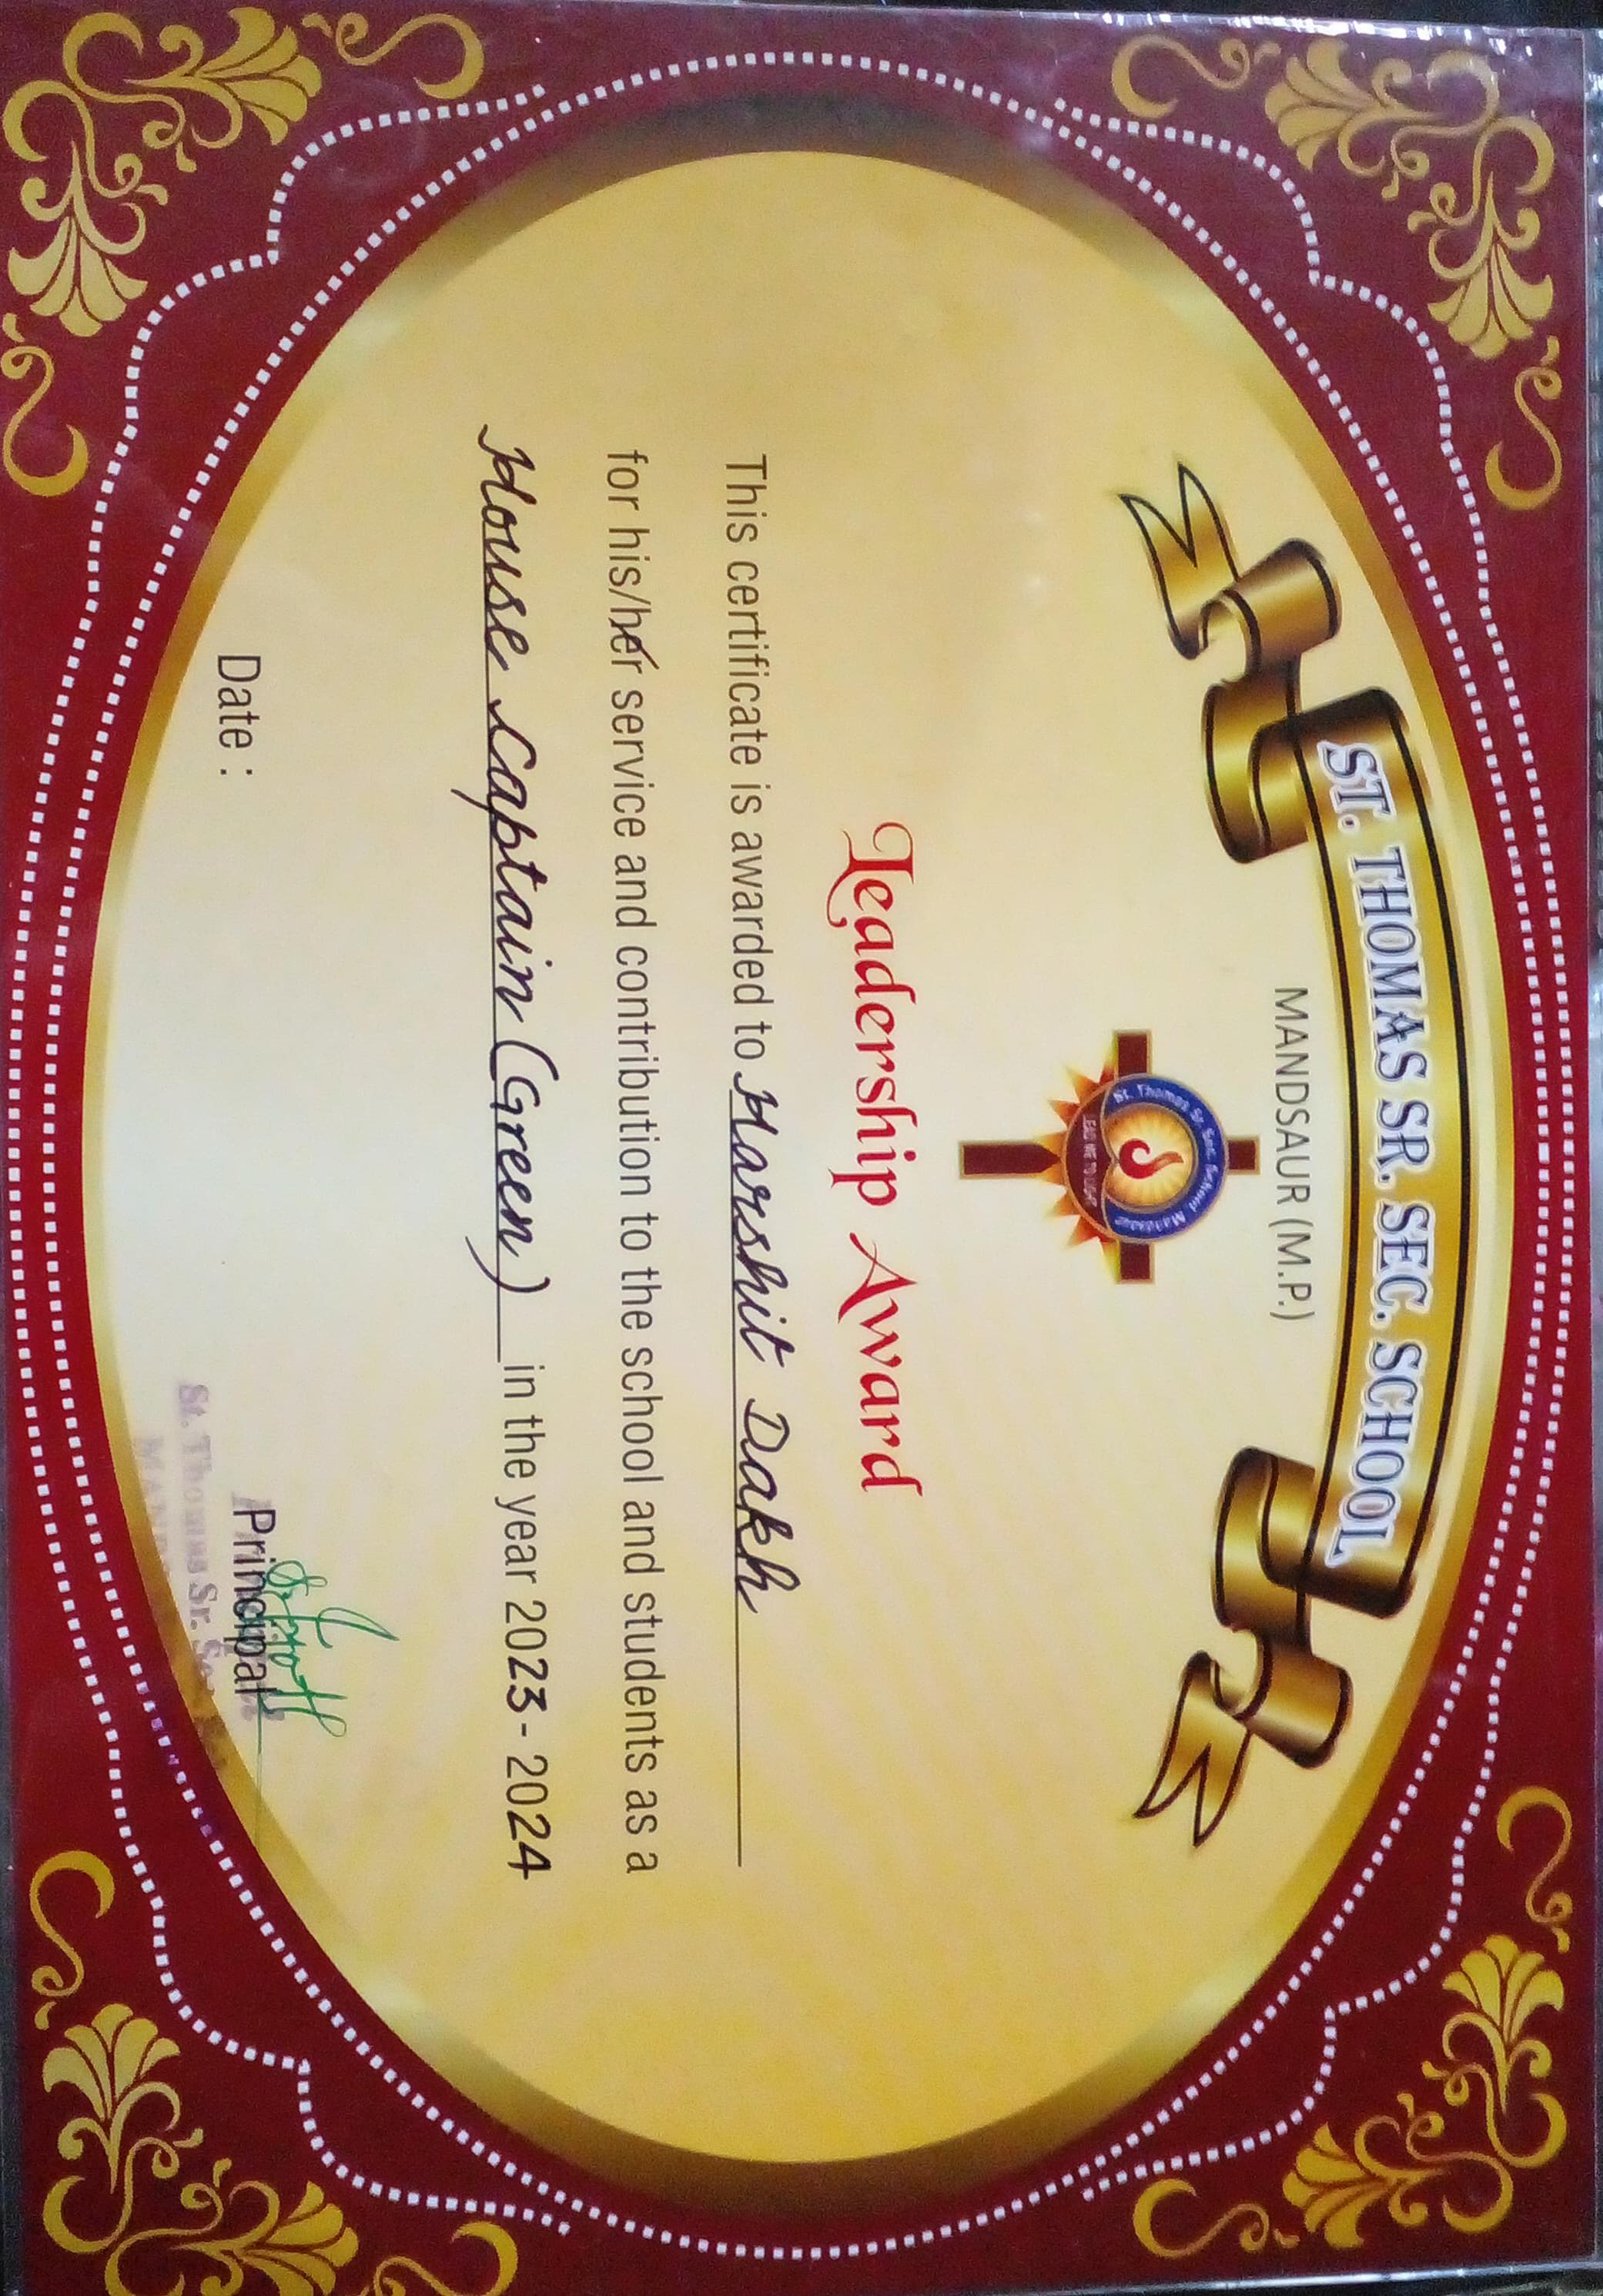 ST. THOMAS SR. SEC. SCHOOL
MANDSAUR (M.P.)
St. Thomas Sr. Sec. School Mandsaur
LEAD ME TO LIGHT
Leadership Award
This certificate is awarded to Harshit Dakh
for his/her service and contribution to the school and students as a
House Captain (Green) in the year 2023 - 2024
Date :
Principal
Principal
St. Thomas Sr. Sec.